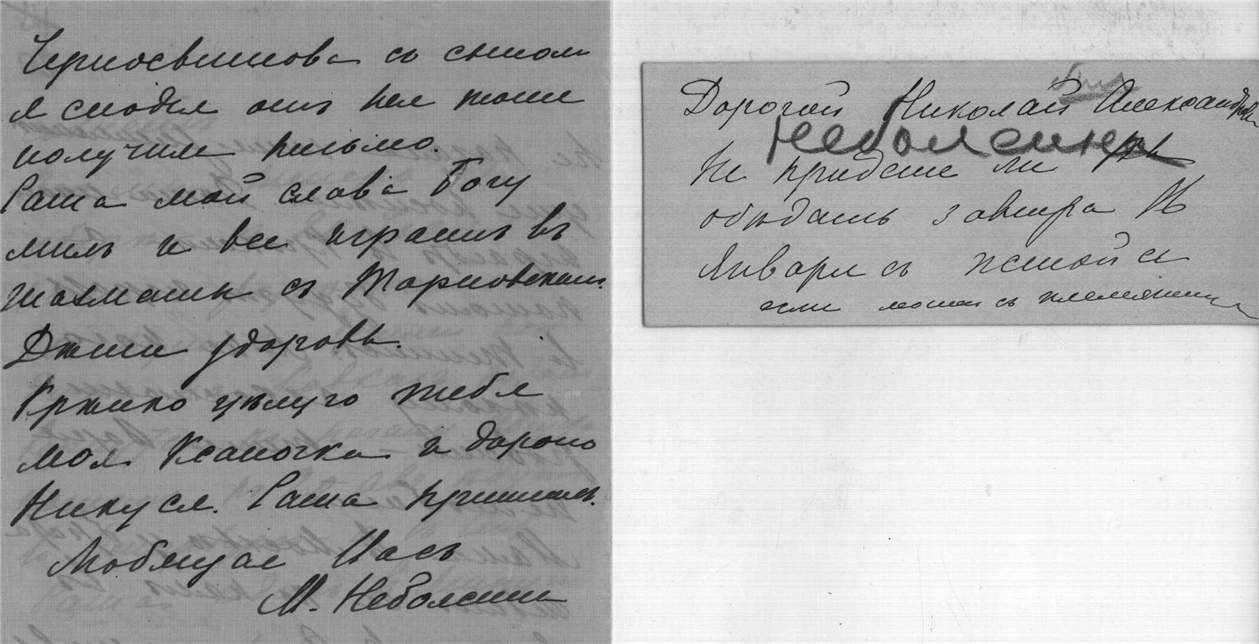 Черносвитова съ сыномъ
я сегодня отъ нея тоже
получила письмо.
Саша мой слава Богу
милъ и все играетъ въ
шахматы съ Тарновскимъ.
Дѣти здоровы.
Крѣпко цѣлую тебя
моя Ксаночка и дорого
Никуся. Саша
Любящая Васъ
М. Неболсина
Дорогой Николай Александр
Неболсина
Не придете ли
обѣдать завтра 16
Января съ женой и
если можно съ племянни